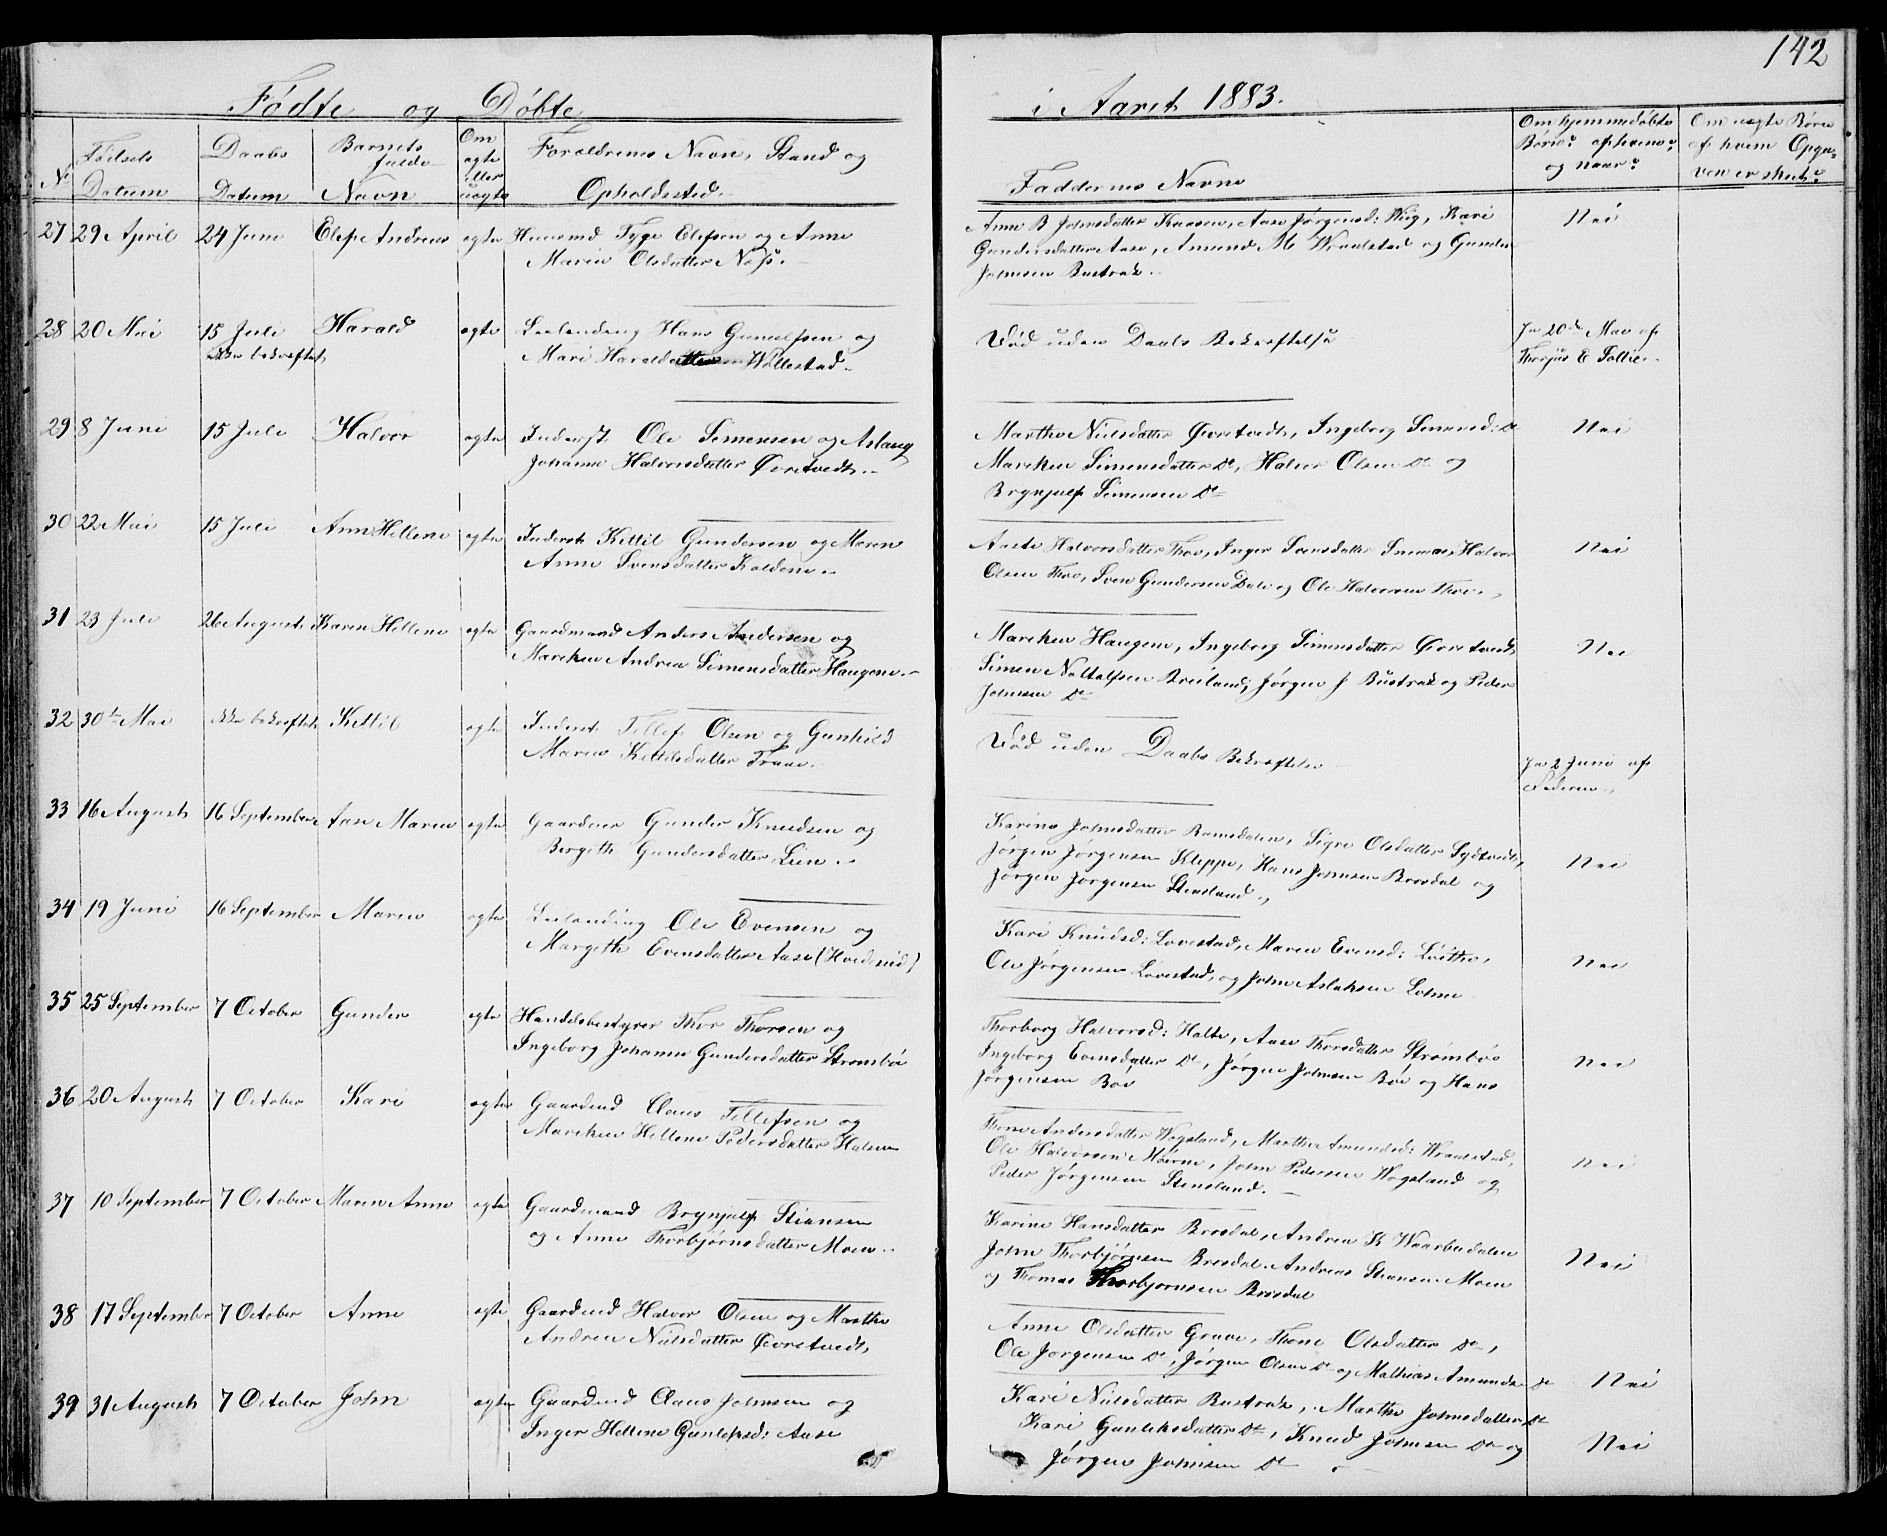 142
Fødte og Døbte i Aaret 1883.
No
Fødsels Datum
Daabs Datum
Barnets fulde Navn
Om ægte eller uægte
Forældrenes Navn, Stand og Opholdssted.
Faddernes Navne
Om hjemmedøbte Børn: af hvem og naar?
Om uægte Børn af hvem Opgaven er skeet?
27 29 April 24 Juni Elef Andreas ægte Huusmd Tyge Elefsen og Anne
Maren Olsdatter Næs.
Anne B Johnsdatter Kaasen, Aase Jørgensd: Kari
Gundersdatter Aase, Amund M. Wraalstad og Gunder
Johnsen Bustrak.
Nei
28 20 Mai 15 Juli Harald ægte Leilending Hans Gunulfsen og
ikke bekræftet
Mari Haraldsdatter Wollestad.
Død uden Daabs Bekræftelse
Ja 20de Mai af
Thorjus E Foltie.
29 8 Juni 15 Juli Halvor ægte Inderst Ole Simensen og Aslaug
Johanne Halvorsdatter Øvretvedt.
Marthe Nielsdatter Øvretvedt, Ingeborg Simensd: Do
Mareken Simensdatter Do, Halvor Olsen Do og
Brynjulf Simensen Do
Nei
30 22 Mai 15 Juli Ann Hellene ægte Inderst Kittil Gundersen og Maren
Anne Svensdatter Koldene.
Aaste Halvorsdatter Thoe, Inger Svensdatter Halvor
Olsen Thoe, Sven Gundersen Dale og Ole Halvorsen Thoe.
Nei
31 23 Juli 26 August Karen Hellene ægte Gaardmand Anders Andersen og
Mareken Andrea Simensdatter Haugene.
Mareken Haugene, Ingeborg Simensdatter Øvretvedt,
Simen Notalfsen Breiland, Jørgen J Bustrak og Peder
Johnsen Do
Nei
32 30te Mai ikke bekræftet Kittil ægte Inderst Tellef Olsen og Gunhild
Maren Kittilsdatter Traae.
Død uden Daabs Bekræftelse
Ja 2 Juni af
Faderen.
33 16 August 16 September Aase Maren ægte Gaardeier Gunder Knudsen og
Bergith Gundersdatter Lien.
Karine Johnsdatter Ramsdalen, Sigri Olsdatter Sydtvedt,
Jørgen Jørgensen Kleppe, Hans Johnsen Brosdal og
Jørgen Jørgensen Stensland.
Nei
34 19 Juni 16 September Maren ægte Leilending Ole Evensen og
Margith Evensdatter Aase (Hvideseid)
Kari Knudsd: Lovestad, Maren Evensd: Løithe,
Ole Jørgensen Lovestad, og John Aslaksen Lohne
Nei
35 25 September 7 October Gunder ægte Handelsbestyrer Thor Thorsen og
Ingeborg Johanne Gundersdatter Strømbø
Thorborg Halvorsd: Halte, Aase Thorsdatter Strømbø
Ingeborg Evensdatter Do, Jørgen Johnsen Bøe og Hans
Jørgensen Bøe
Nei
36 20 August 7 October Kari ægte Gaardmd Claus Tellefsen og
Mareken Hellene Pedersdatter Halsen
Thone Andersdatter Wogsland, Marthe Amundsd: Wraalstad,
Ole Halvorsen Moerne, John Pedersen Wogsland og
Peder Jørgensen Stensland.
Nei
37 10 September 7 October Maren Anne ægte Gaardmand Brynjulf Stiansen
og Anne Thorbjørnsdatter Moen.
Karine Hansdatter Brosdal, Andrea K Waarbudalen
John Thorbjørnsen Brosdal, Andreas Stiansen Moen
og Thomas Thorbjørnsen Brosdal
Nei
38 17 September 7 October Anne ægte Gaardmd Halvor Olsen og Marthe
Andrea Nielsdatter Øvretvedt,
Anne Olsdatter Grave, Thone Olsdatter Do,
Ole Jørgensen Do, Jørgen Olsen Do og Mathias Amunds. Do
Nei
39 31 August 7 October John ægte Gaardmd Claus Johnsen og
Inger Hellene Gunlefsd: Aase
Kari Nielsdatter Bustrak, Marthe Johnsdatter Do
Kari Gunleksdatter Do, Knud Johnsen Do og
Jørgen Johnsen Do
Nei